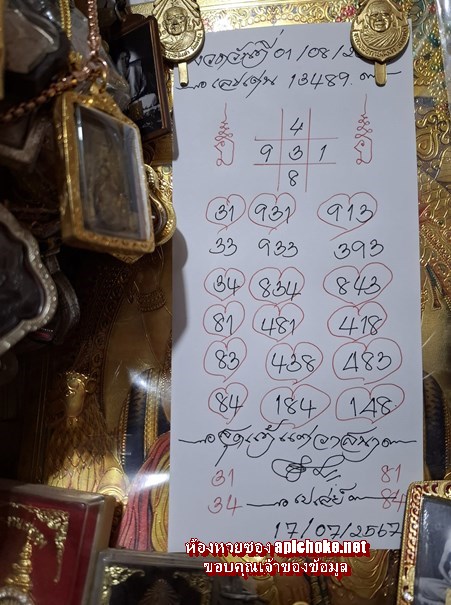 งวดวันที่ 01/08/2
เลขเด่น 13489
4
9 3 1
8
31 931 913
33 933 393
34 834 843
81 481 418
83 438 483
84 184 148
สุดแท้แต่วาสนา
31 81
34 84
17/07/2567
ห้องหวยซอง apichoke.net
ขอบคุณเจ้าของข้อมูล